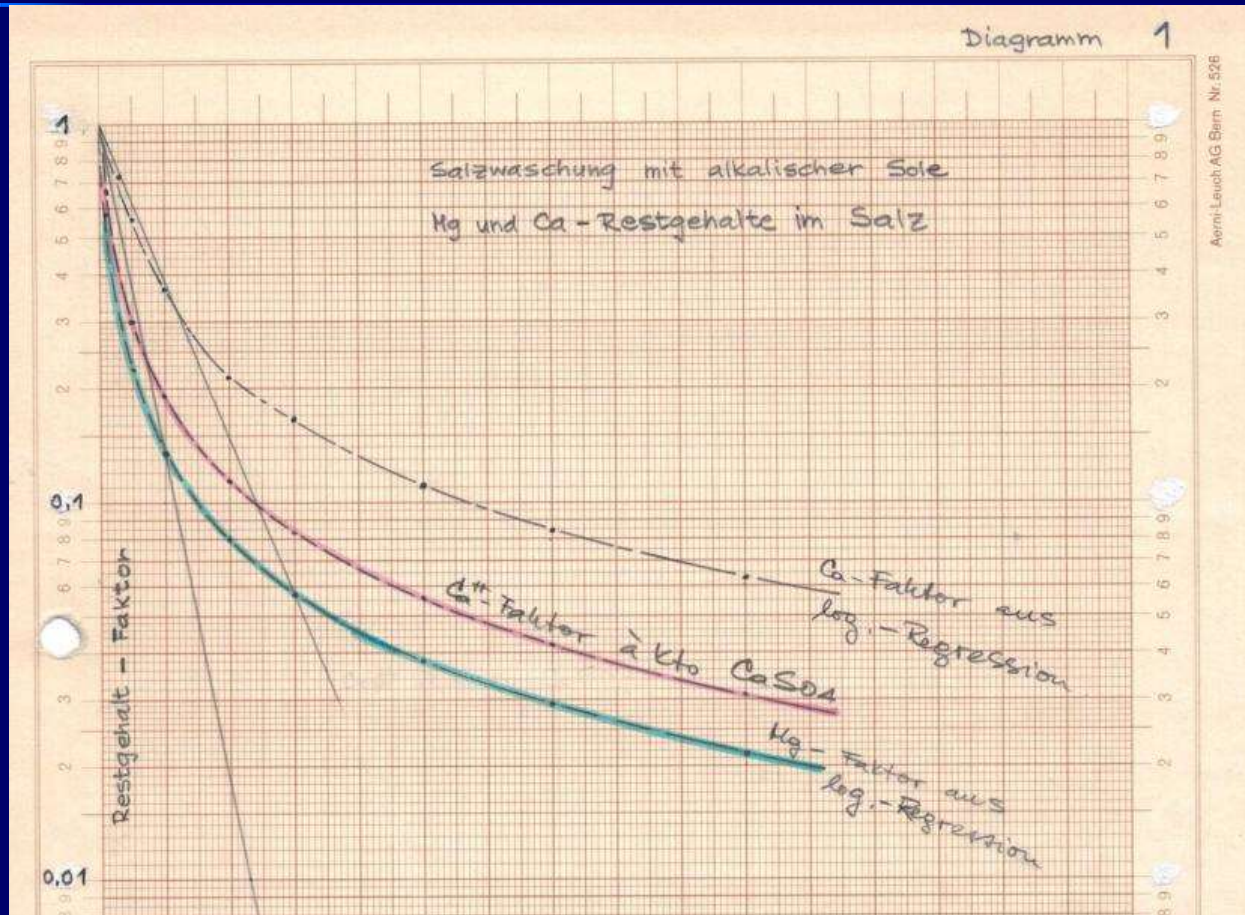 Diagramm 1
Aerni-Leuch AG Bern Nr. 526
Salzwaschung mit alkalischer Sole
Mg und Ca - Restgehalte im Salz
1
9
8
7
6
5
4
3
2
0,1
9
8
7
6
5
4
3
2
0,01
9
8
Restgehalt - Faktor
Ca - Faktor aus
log. - Regression
Ca++ - Faktor à Kto CaSO4
Mg - Faktor aus
log. - Regression
9
8
7
6
5
4
3
2
9
8
7
6
5
4
3
2
9
8